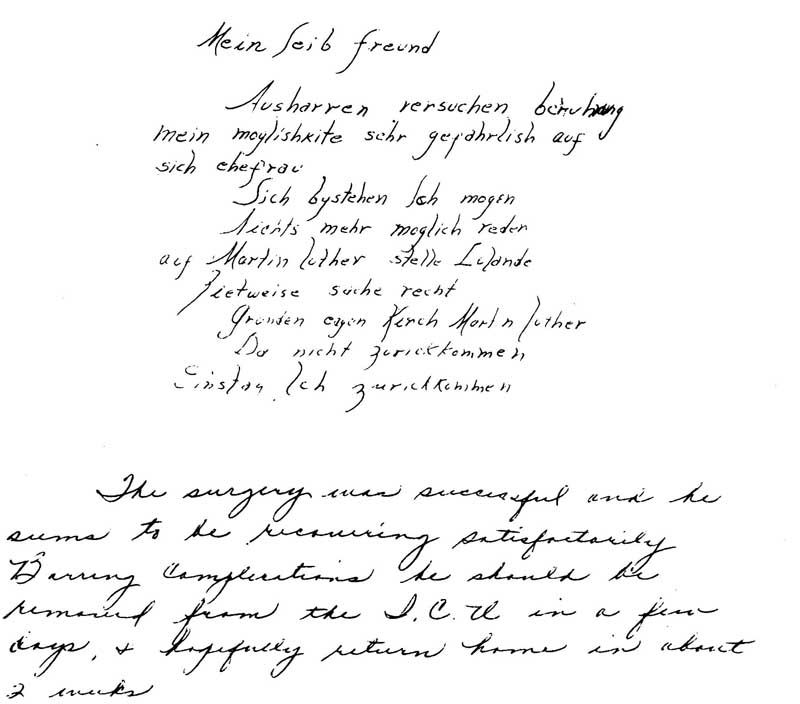 Mein Leib freund
Ausharren versuchen beruhung
mein moglishkite sehr gefahrlish auf
sich ehefrau
Sich bystehen Ich mogen
Nichts mehr moglich reden
auf Martin luther stelle
suche recht
Grunden eagen Kirch Martin luther
Da nicht zurickkommen
Einstag Ich zurickkommen
The surgery was successful and he
seems to be recovering satisfactorily
Barring complications he should be
removed from the I.C.U in a few
days, & hopefully return home in about
2 weeks